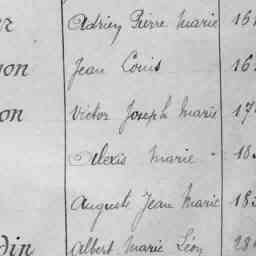 er Adrien Pierre Marie 16
yon Jean Louis 16
on Victor Joseph Marie 17
Alexis Marie 18
Auguste Jean Marie 18
din Albert Marie Léon 28